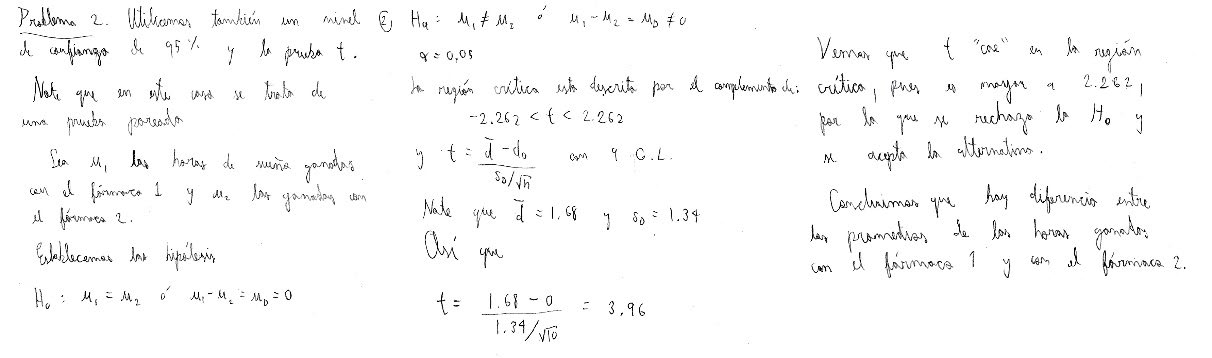 Problema 2. Utilicemos también un nivel
de confianza de 95% y la prueba t.
Note que en este caso se trata de
una prueba pareada
Sea μ₁ las horas de sueño ganadas
con el fármaco 1 y μ₂ las ganadas con
el fármaco 2.
Establecemos las hipótesis
H₀ : μ₁ = μ₂ ó μ₁-μ₂ = μ_D = 0
H₁ : μ₁ ≠ μ₂ ó μ₁-μ₂ = μ_D ≠ 0
α = 0,05
La región crítica está descrita por el complemento de:
-2.262 < t < 2.262
y t = (d̄ - d₀) / (s_D/√n) con 9 G.L.
Note que d̄ = 1.68 y s_D = 1.34
Así que
t = (1.68 - 0) / (1.34/√10) = 3.96
Vemos que t "cae" en la región
crítica, pues es mayor a 2.262,
por lo que se rechaza la H₀ y
se acepta la alternativa.
Concluimos que hay diferencia entre
los promedios de las horas ganadas
con el fármaco 1 y con el fármaco 2.